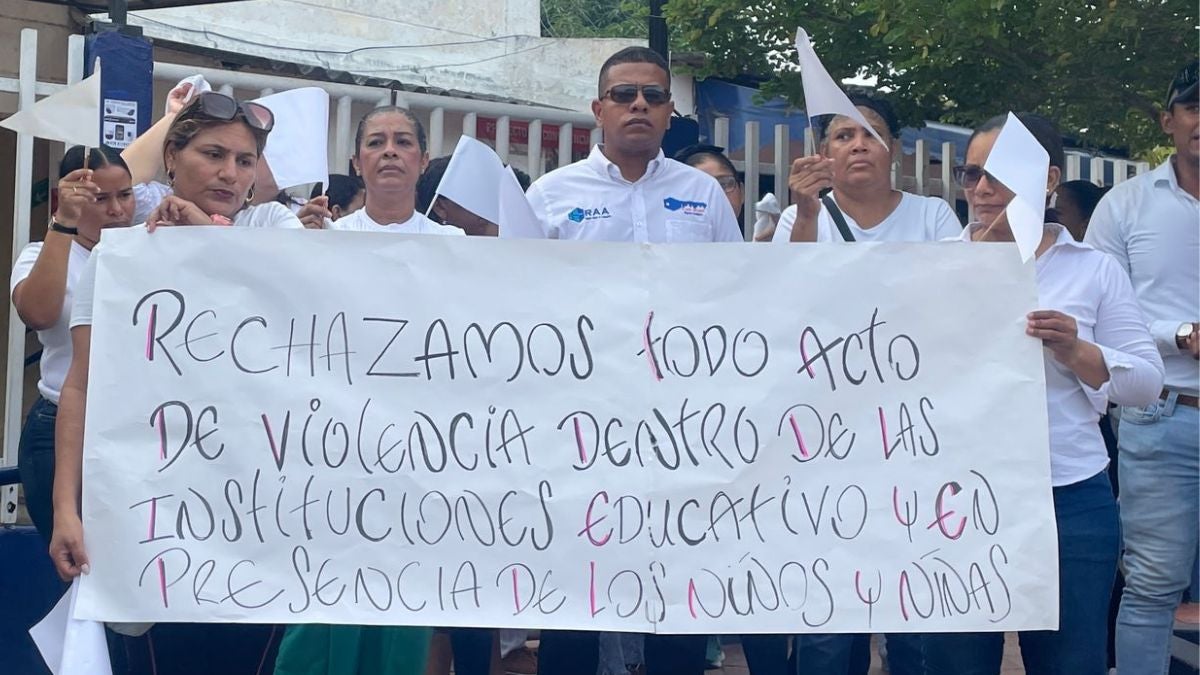 RAA
RECHAZAMOS todo Acto
DE VIOLENCIA DENTRO DE LAS
INSTITUCIONES EDUCATIVO Y EN
PRESENCIA DE LOS NIÑOS Y NIÑAS